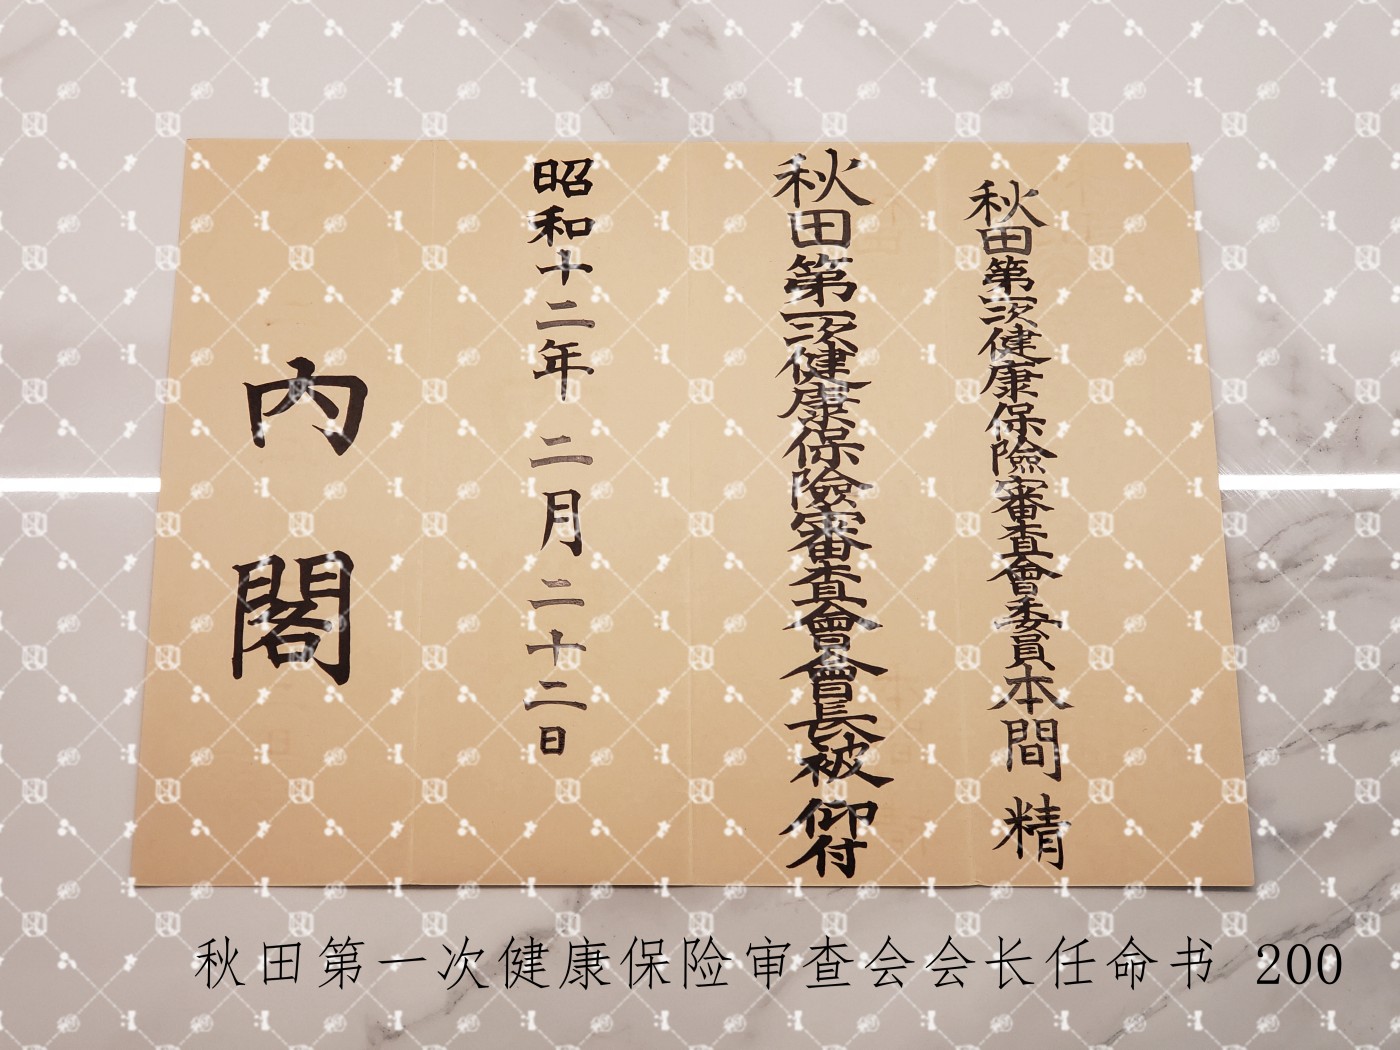 秋田第一次健康保險審查會委員本間精
秋田第一次健康保險審查會會長被仰付
昭和十二年二月二十二日
内閣
秋田第一次健康保险审查会会长任命书 200